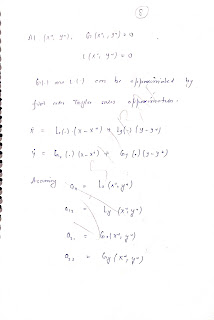 (5)
At (x*, y*), G(x*, y*) = 0
L(x*, y*) = 0
G(.) and L(.) can be approximated by
first order Taylor series approximation.
ẋ = Lx(.) (x-x*) + Ly(.) (y-y*)
ẏ = Gx(.) (x-x*) + Gy(.) (y-y*)
Assuming a11 = Lx(x*, y*)
a12 = Ly(x*, y*)
a21 = Gx(x*, y*)
a22 = Gy(x*, y*)